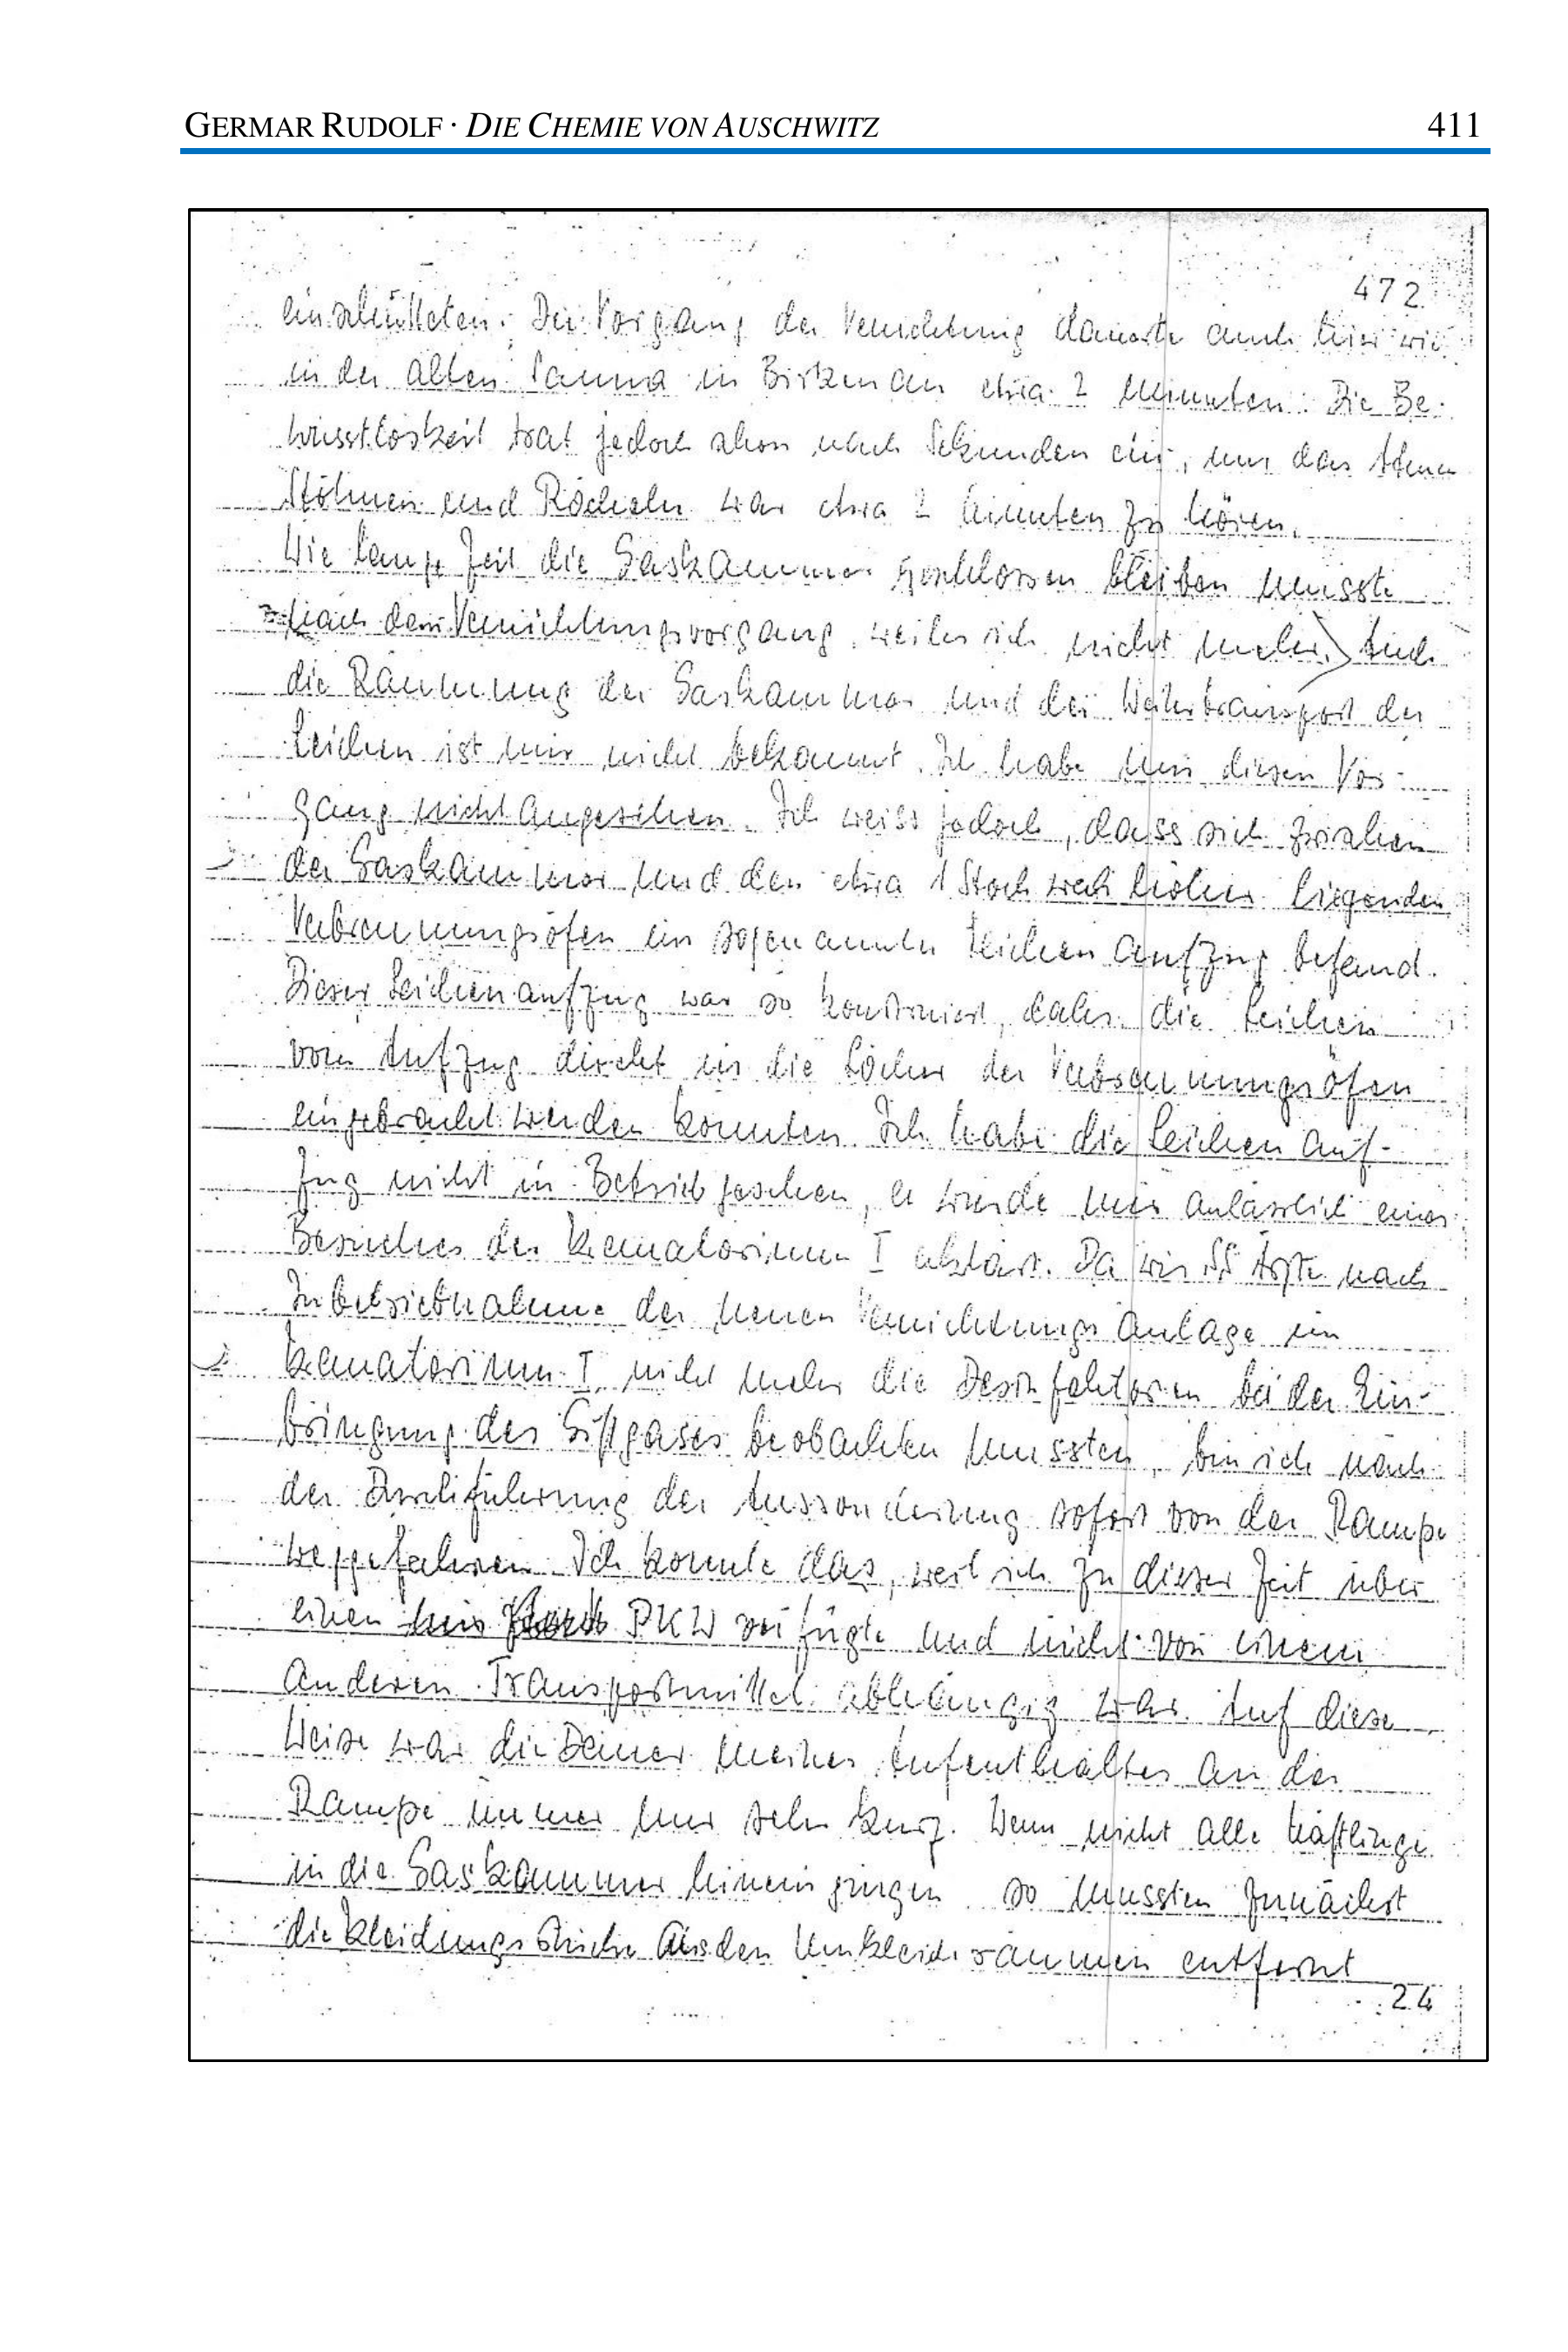 GERMAR RUDOLF · DIE CHEMIE VON AUSCHWITZ 411
472
einschütteten. Der Vorgang der Vernichtung dauerte auch hier wie
in der alten Sauna in Birkenau etwa 2 Minuten. Die Be-
wusstloskeit trat jedoch schon nach Sekunden ein, nur das
Stöhnen und Röcheln war etwa 2 Minuten zu hören.
Wie lange Zeit die Gaskammer geschlossen bleiben musste
nach dem Vernichtungsvorgang, weiss ich nicht mehr. Auch
die Räumung der Gaskammer und der Weitertransport der
Leichen ist mir nicht bekannt. Ich habe mir diesen Vor-
gang nicht angesehen. Ich weiss jedoch, dass sich zwischen
der Gaskammer und den etwa 1 Stockwerk höher liegenden
Verbrennungsöfen ein sogenannter Leichenaufzug befand.
Dieser Leichenaufzug war so konstruiert, dass die Leichen
vom Aufzug direkt in die Löcher der Verbrennungsöfen
eingebracht werden konnten. Ich habe die Leichenauf-
zug nicht in Betrieb gesehen, er wurde mir anlässlich eines
Besuches des Krematoriums I erklärt. Da wir SS Ärzte nach
Inbetriebnahme der neuen Vernichtungs Anlage im
Krematorium I nicht mehr die Desinfektoren bei der Ein-
bringung des Giftgases beobachten mussten, bin ich nach
der Durchführung der Aussonderung sofort von der Rampe
weggefahren. Ich konnte das, weil ich zu dieser Zeit über
einen PKW verfügte und nicht von einem
anderen Transportmittel abhängig war. Auf diese
Weise war die Dauer meines Aufenthaltes an der
Rampe immer nur sehr kurz. Wenn nicht alle Häftlinge
in die Gaskammer hinein gingen so mussten zunächst
die Kleidungsstücke aus den Umkleideräumen entfernt
24